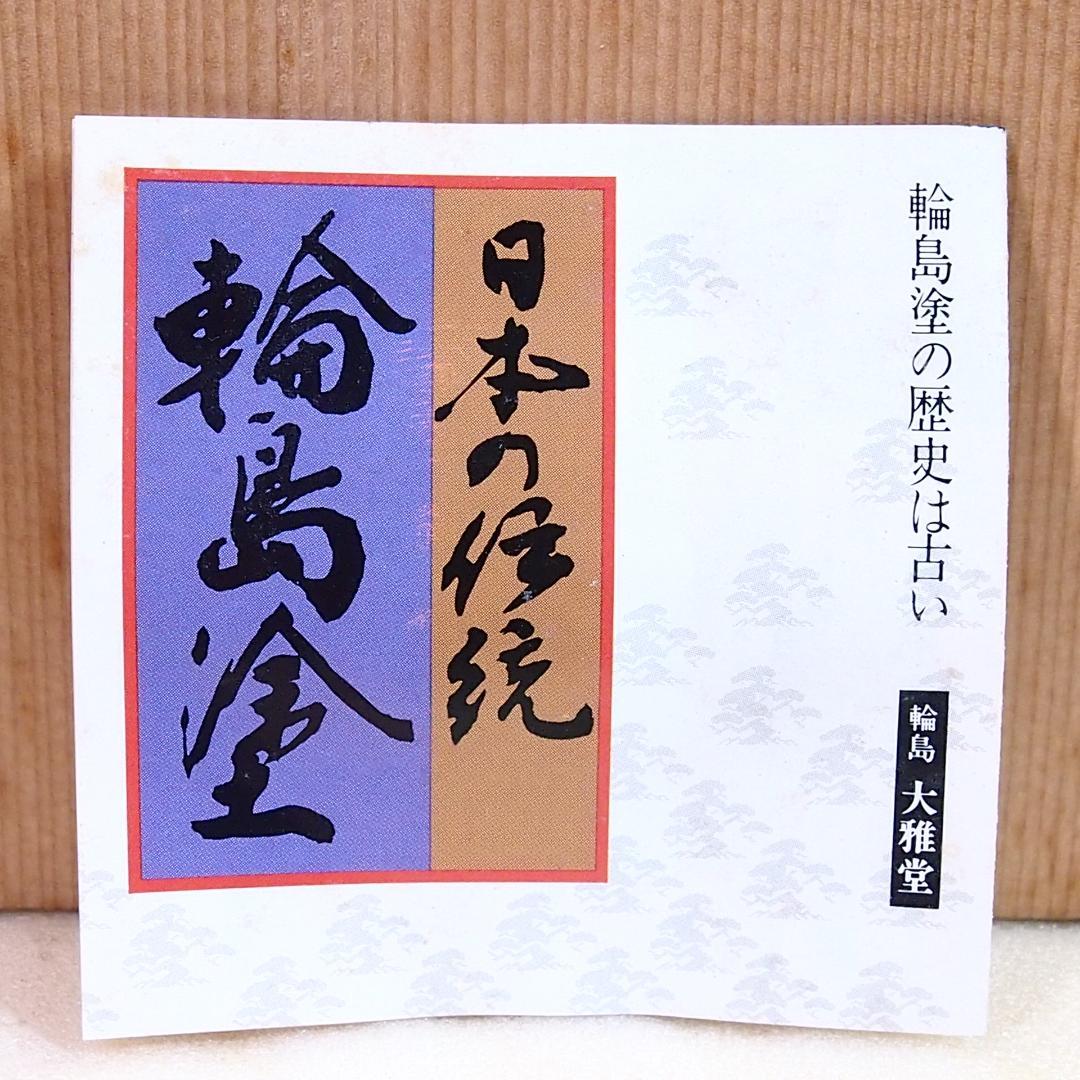 輪島塗の歴史は古い
輪島 大雅堂
日本の伝統
輪島塗